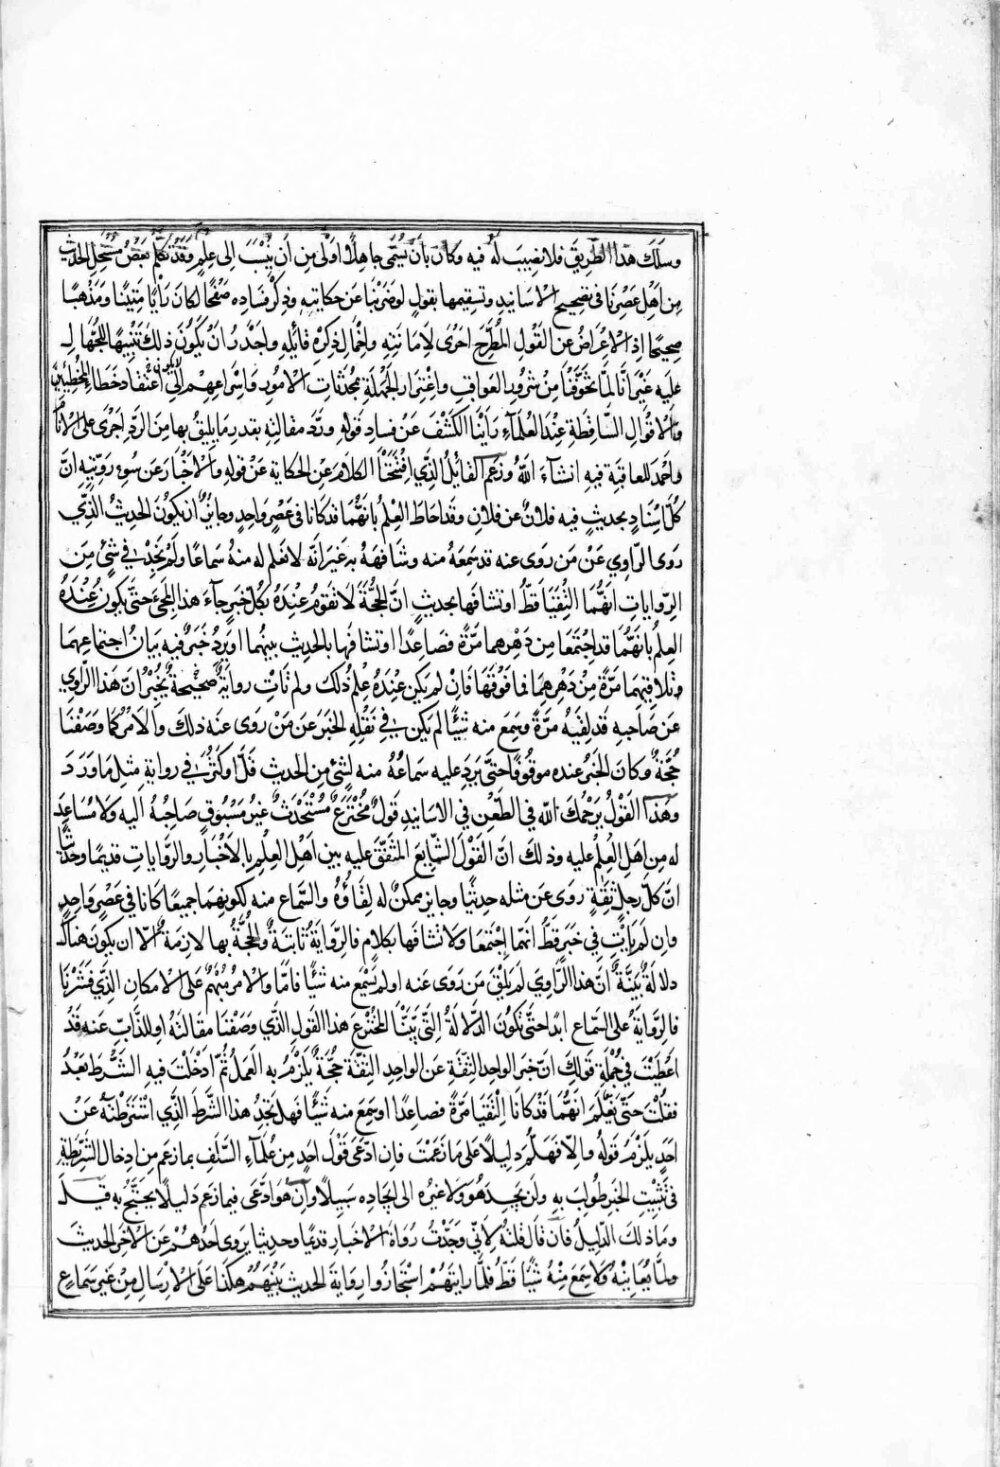 وسلك هذا الطريق فلا نصيب له فيه وكان بأن يسمى جاهلا اولى من أن ينسب الى علم وقد تكلم بعض منتحلي الحديث
من أهل عصرنا في تصحيح الاسانيد وتسقيمها بقول لو ضربنا عن حكايته وذكر فساده صفحا لكان رأيا متينا ومذهبا
صحيحا إذ الاعراض عن القول المطرح احرى لاماتته واخمال ذكره قائله واجدر ان يكون ذلك تنبيها للجها لـ
عليه غير انا لما تخوفنا من شرور العواقب واغترار الجهلة بمحدثات الامور واسراعهم الى اعتقاد خطاء المخطيين
والاقوال الساقطة عند العلمآء رأينا الكشف عن فساد قوله ورد مقالته بقدر ما يليق بها من الرد اجرى على الانام
واحمد للعاقبة فيه انشاء الله وزعم القائل الذي افتتحنا الكلام عن الحكاية عن قوله والاخبار عن سوء رويته ان
كل اسناد بحديث فيه فلان عن فلان وقد احاط العلم بانهما قد كانا في عصر واحد وجايز ان يكون الحديث الذي
روى الراوي عن من روى عنه قد سمعه منه وشافهه به غير انه لا نعلم له منه سماعا ولم نجد في شئ من
الروايات انهما التقيا قط او تشافها بحديث ان الحجة لا تقوم عنده بكل خبر جآء هذا المجئ حتى يكون عنده
العلم بانهما قد اجتمعا من دهرهما مرة فصاعدا او تشافها بالحديث بينهما او يرد خبر فيه بيان اجتماعهما
وتلاقيهما مرة من دهرهما فما فوقها فان لم يكن عنده علم ذلك ولم تات رواية صحيحة تخبر ان هذا الراوي
عن صاحبه قد لقيه مرة وسمع منه شيئا لم يكن في نقله الخبر عن من روى عنه ذلك والامر كما وصفنا
حجة وكان الخبر عنده موقوفا حتى يرد عليه سماعه منه لشئ من الحديث قل او كثر في رواية مثل ما ورد
وهذا القول يرحمك الله في الطعن في الاسانيد قول مخترع مستحدث غير مسبوق صاحبه اليه ولا مساعد
له من اهل العلم عليه وذلك ان القول الشايع المتفق عليه بين اهل العلم بالاخبار والروايات قديما وحديثا
ان كل رجل ثقة روى عن مثله حديثا وجايز ممكن له لقاؤه والسماع منه لكونهما جميعا كانا في عصر واحد
وان لم يات في خبر قط انهما اجتمعا ولا تشافها بكلام فالرواية ثابتة والحجة بها لازمة الا ان يكون هناك
دلالة بينة ان هذا الراوي لم يلق من روى عنه او لم يسمع منه شيئا فاما والامر مبهم على الامكان الذي فسرنا
فالرواية على السماع ابدا حتى تكون الدلالة التي بينا لمخترع هذا القول الذي وصفنا مقالته او للذاب عنه قد
اعطيت في جملة قولك ان خبر الواحد الثقة عن الواحد الثقة حجة يلزم به العمل ثم ادخلت فيه الشرط بعد
فقلت حتى يعلم انهما قد كانا التقيا مرة فصاعدا او سمع منه شيئا فهل تجد هذا الشرط الذي اشترطته عن
احد يلزم قوله والا فهلم دليلا على ما زعمت فان ادعى قول احد من علمآء السلف بما زعم من ادخال الشريطة
في تثبيت الخبر طولب به ولن يجد هو ولا غيره الى ايجاده سبيلا وان هو ادعى فيما زعم دليلا يحتج به قيل
وما ذلك الدليل فان قال قلته لاني وجدت رواة الاخبار قديما وحديثا يروى احدهم عن الاخر الحديث
ولما يعاينه ولا سمع منه شيئا قط فلما رايتهم استجازوا رواية الحديث بينهم هكذا على الارسال من غير سماع